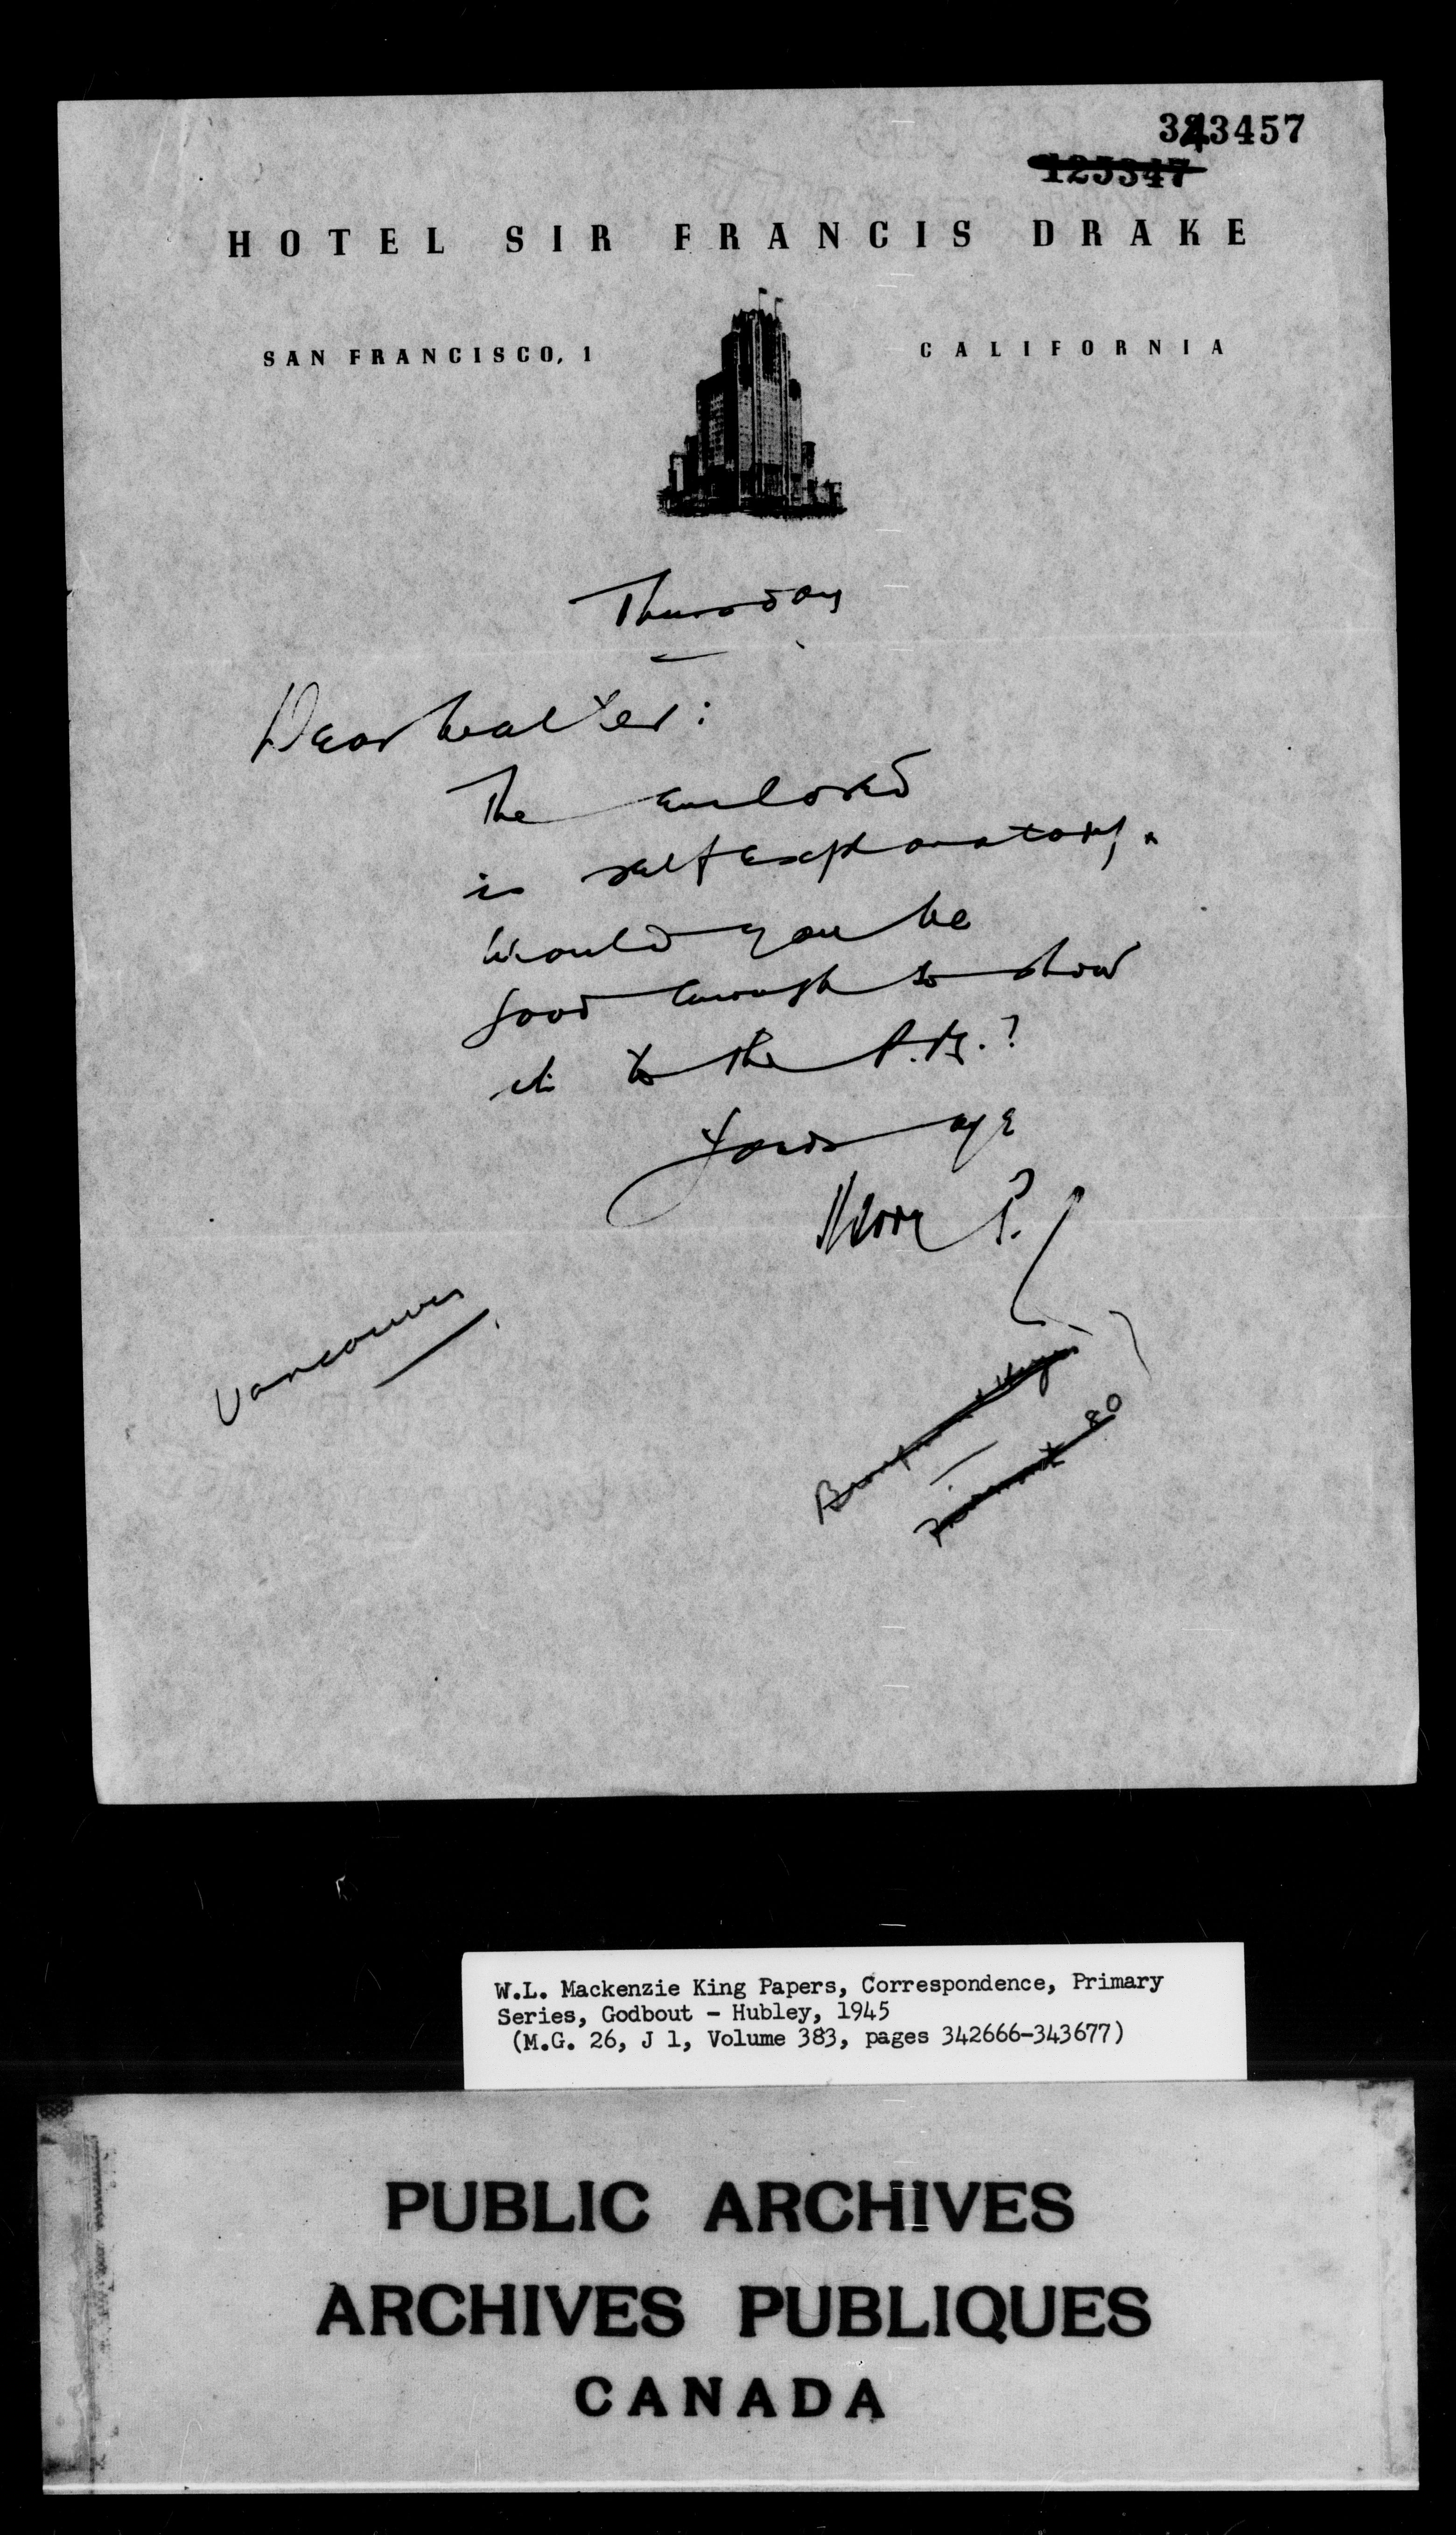 343457
125347
HOTEL SIR FRANCIS DRAKE
SAN FRANCISCO, 1 CALIFORNIA
Thursday
Dear Walter:
The enclosed
is self explanatory.
Would you be
good enough to show
it to the P.M.?
Yours aye
Vancouver
80
W.L. Mackenzie King Papers, Correspondence, Primary
Series, Godbout - Hubley, 1945
(M.G. 26, J 1, Volume 383, pages 342666-343677)
PUBLIC ARCHIVES
ARCHIVES PUBLIQUES
CANADA